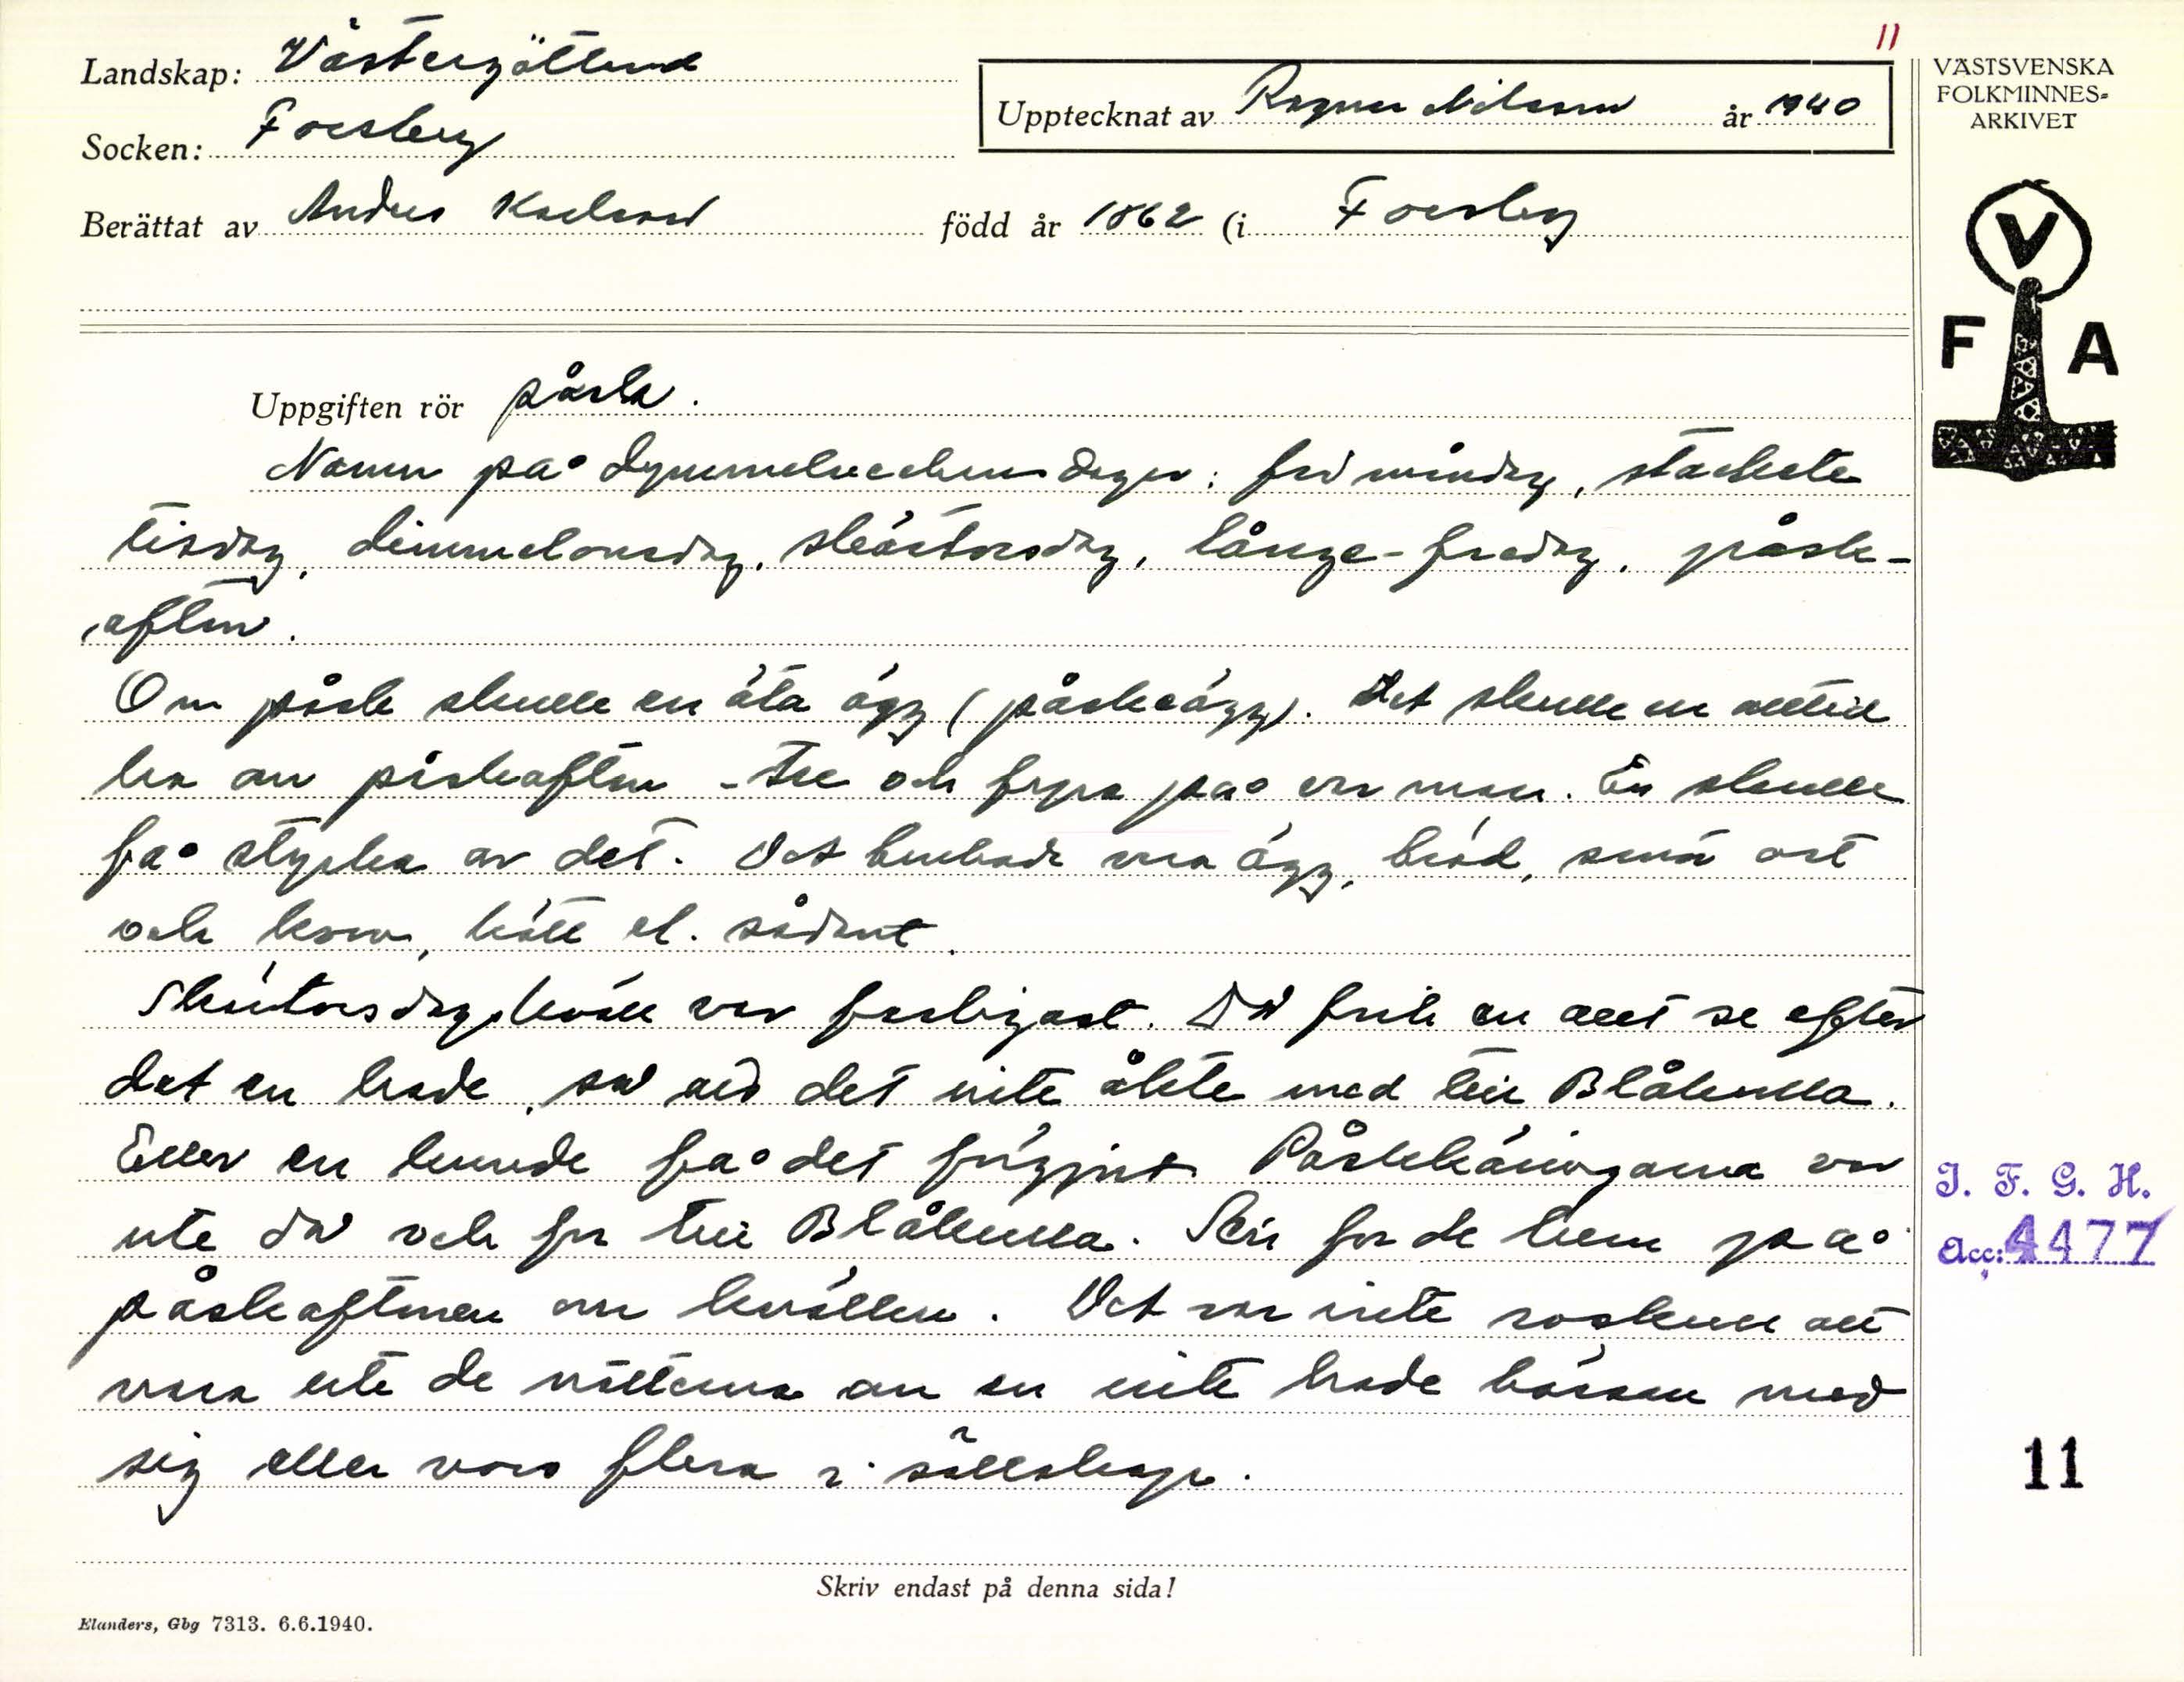 11
Landskap: Västergötland
Upptecknat av Ragnar Nilsson år 1940
VÄSTSVENSKA
FOLKMINNES-
ARKIVET
Socken: Forsby
Berättat av Anders Karlsson född år 1862 (i Forsby
V
F A
Uppgiften rör påsk.
Namn på dymmelveckans dagar: fri måndag, stackete
tisdag, dimmelonsdag, skärtorsdag, långe-fredag, påsk-
aften.
Om påsk skulle en äta ägg (påskeägg). Det skulle en alltid
ha om påskaften - tre och fyra på en man. En skulle
få stycka av det. Det brukade vara ägg, bröd, små ost
och korv, kött el. sådant.
Skärtorsdagskväll var farligast. Då fick en allt se efter
det en hade, så att det inte åkte med till Blåkulla.
Eller en kunde få det förgjort. Påskkäringarna var
ute då och for till Blåkulla. Sen for de hem på
påskaftonen om kvällen. Det var inte roskull att
vara ute de nätterna om en inte hade bössan med
sig eller voro flera i sällskap.
J. F. G. H.
Acc: 4477
11
Skriv endast på denna sida!
Elanders, Gbg 7313. 6.6.1940.